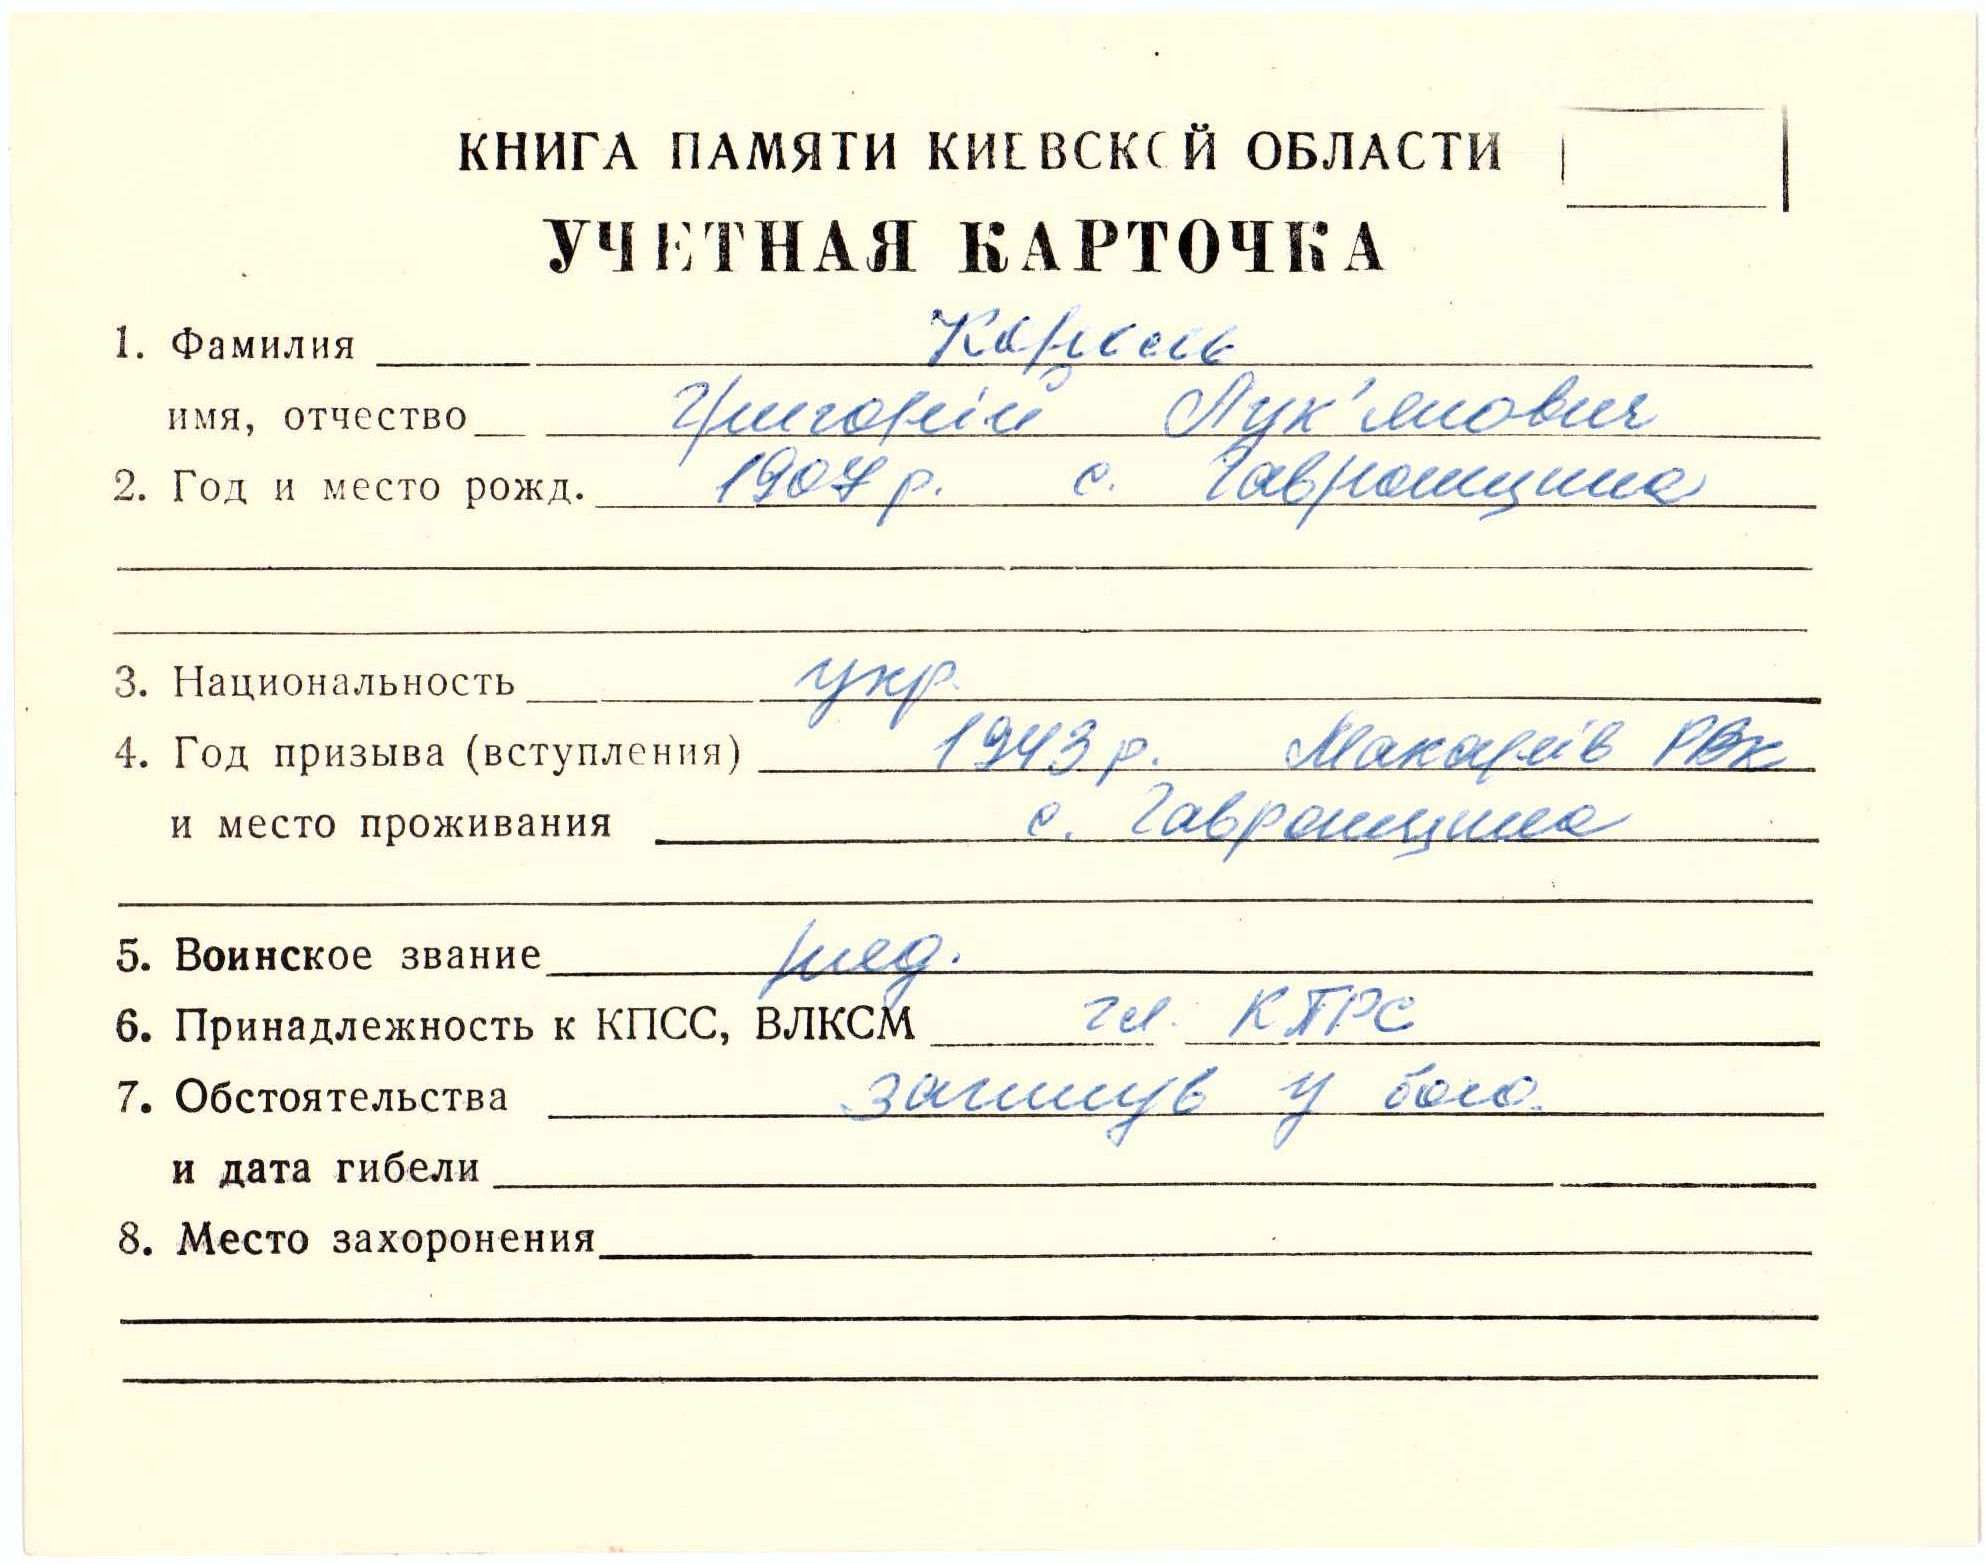 КНИГА ПАМЯТИ КИЕВСКОЙ ОБЛАСТИ
УЧЕТНАЯ КАРТОЧКА
1. Фамилия
имя, отчество Григорій Лук'янович
2. Год и место рожд. 1907 р. с. Гавронщина
3. Национальность укр.
4. Год призыва (вступления) 1943 р. Макарів РВК
и место проживания с. Гавронщина
5. Воинское звание ряд.
6. Принадлежность к КПСС, ВЛКСМ чл. КПРС
7. Обстоятельства загинув у бою.
и дата гибели
8. Место захоронения